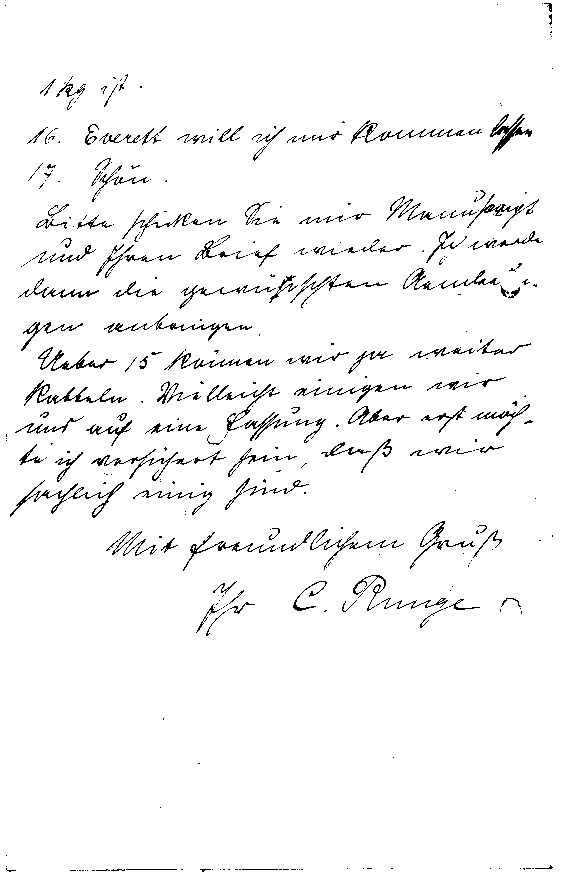 1 kg ist.
16. Everett will ich mir kommen lassen
17. Schön.
Bitte schicken Sie mir Manuskript
und Ihren Brief wieder. Ich werde
dann die gewünschten Aenderun-
gen anbringen.
Ueber 15 können wir ja weiter
kabbeln. Vielleicht einigen wir
uns auf eine Fassung. Aber erst möch-
te ich versichert sein, daß wir
sachlich einig sind.
Mit freundlichem Gruß
Ihr C. Runge